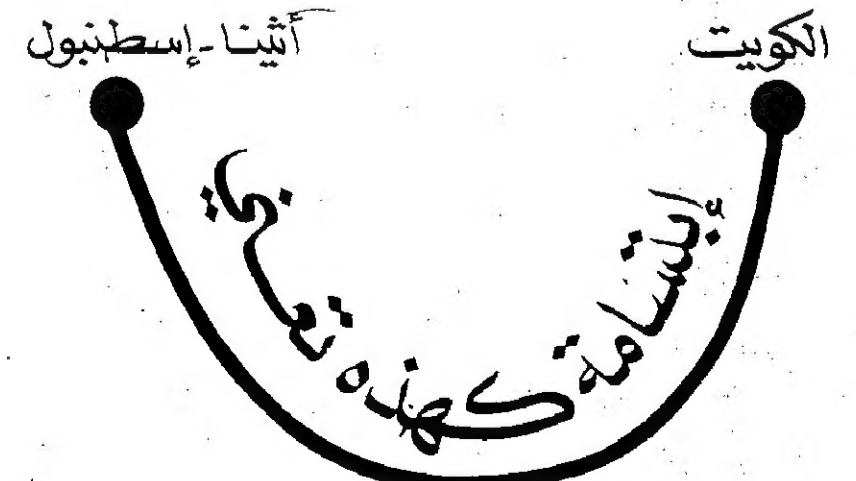 الكويت
أثينا-إسطنبول
إبتسامة كهذه تعني